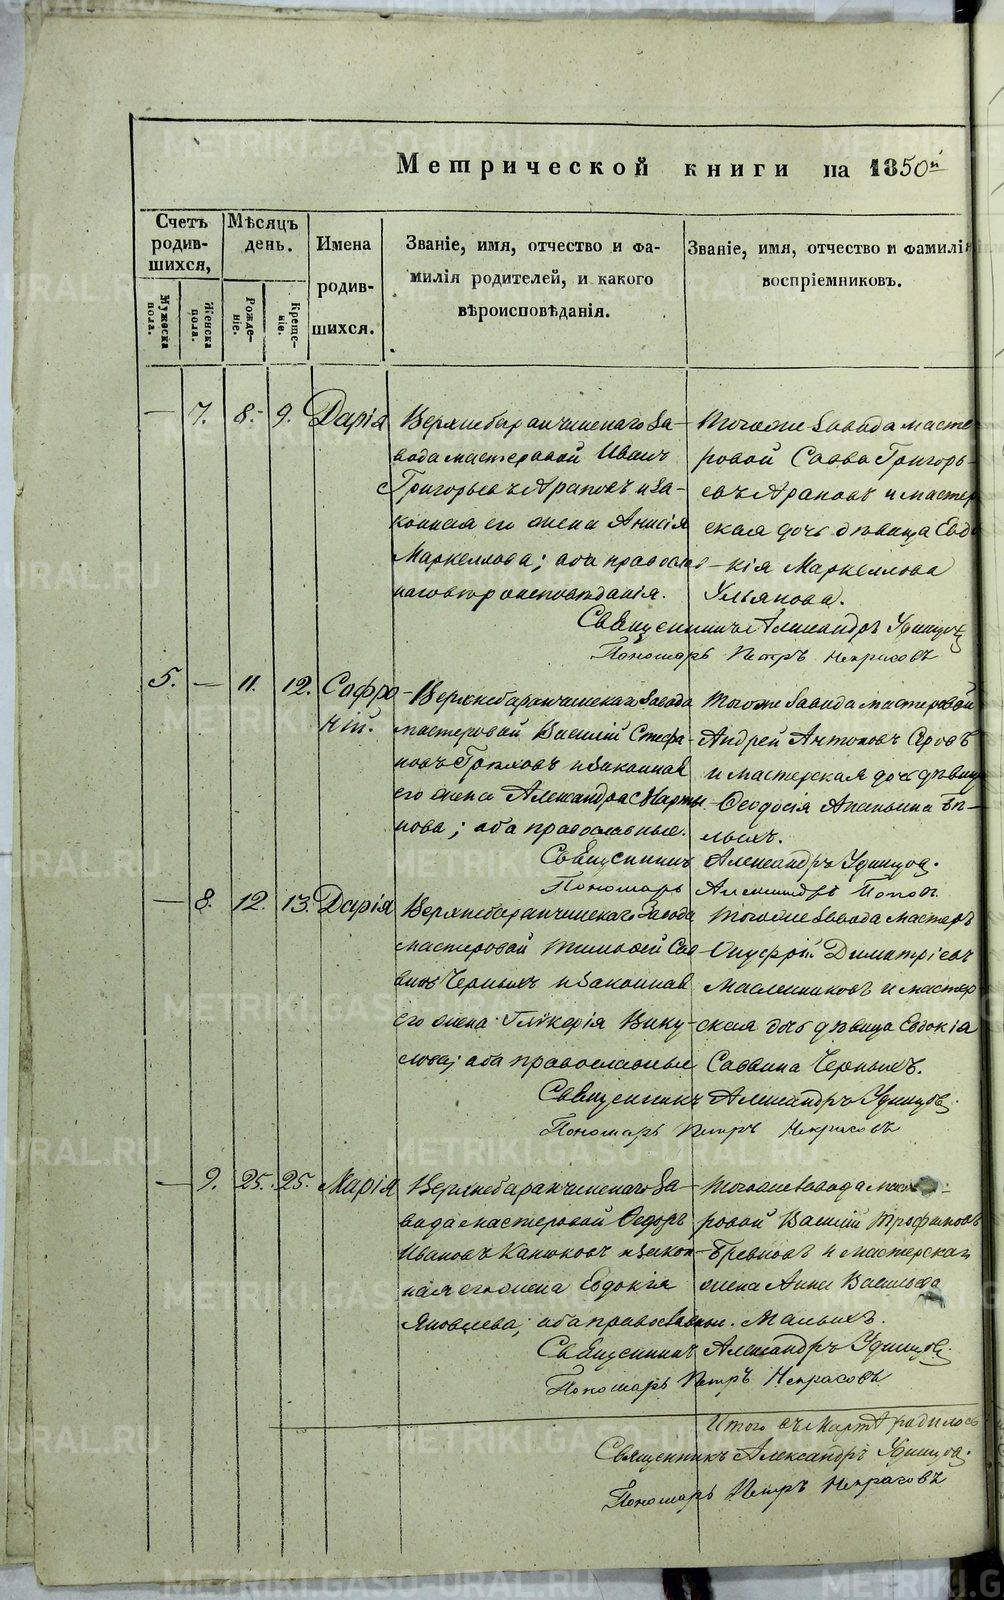 Метрической книги на 1850й
Счетъ родив-шихся,
Мѣсяцъ день.
Имена родив-шихся.
Званіе, имя, отчество и фа-
милія родителей, и какого
вѣроисповѣданія.
Званіе, имя, отчество и фамилія
воспріемниковъ.
Мужеска пола.
Женска пола.
Рожде-ніе.
Креще-ніе.
— 7. 8. 9. Дарія
Верхнебаранчинскаго за-
вода мастеровой Иванъ
Григорьевъ Араповъ и за-
конная его жена Анисія
Маркеллова; оба православ-
наго вѣроисповѣданія.
Тогоже завода масте-
ровой Савва Григорь-
евъ Араповъ и мастер
ская дочь дѣвица Евдо
кія Маркеллова
Ульянова.
Священникъ Александръ Удинцов
Пономарь Петръ Некрасовъ
5. — 11. 12. Софро-
ній.
Верхнебаранчинскаго завода
мастеровой Василій Стефа-
новъ и законная
его жена Александра Марты-
нова; оба православные.
Тогоже завода мастеровой
Андрей Антоновъ Серовъ
и мастерская дочь дѣвица
Феодосія Ананьина Бѣ-
лыхъ.
Священникъ Александръ Удинцов.
Пономарь Попов
— 8. 12. 13. Дарія
Верхнебаранчинскаго завода
мастеровой Тимофей Сав-
винъ Черныхъ и законная
его жена Гликерія Вику-
лова; оба православные
Тогоже завода мастеръ
Онуфрій Димитріевъ
Масленниковъ и мастер-
ская дочь дѣвица Евдокія
Саввина Черныхъ.
Священникъ Александръ Удинцов.
Пономарь Петръ Некрасовъ
— 9. 25. 25. Марія
Верхнебаранчинскаго за-
вода мастеровой Федоръ
Ивановъ Канюковъ и закон-
ная его жена Евдокія
Яковлева; оба православные.
Тогоже завода масте-
ровой Василій Трофимовъ
Бревновъ и мастерская
жена Анна Васильева
Малыхъ.
Священникъ Александръ Удинцов.
Пономарь Петръ Некрасовъ
Итого въ Мартѣ родилось
Священникъ Александръ Удинцов.
Пономарь Петръ Некрасовъ
METRIKI.GASO-URAL.RU